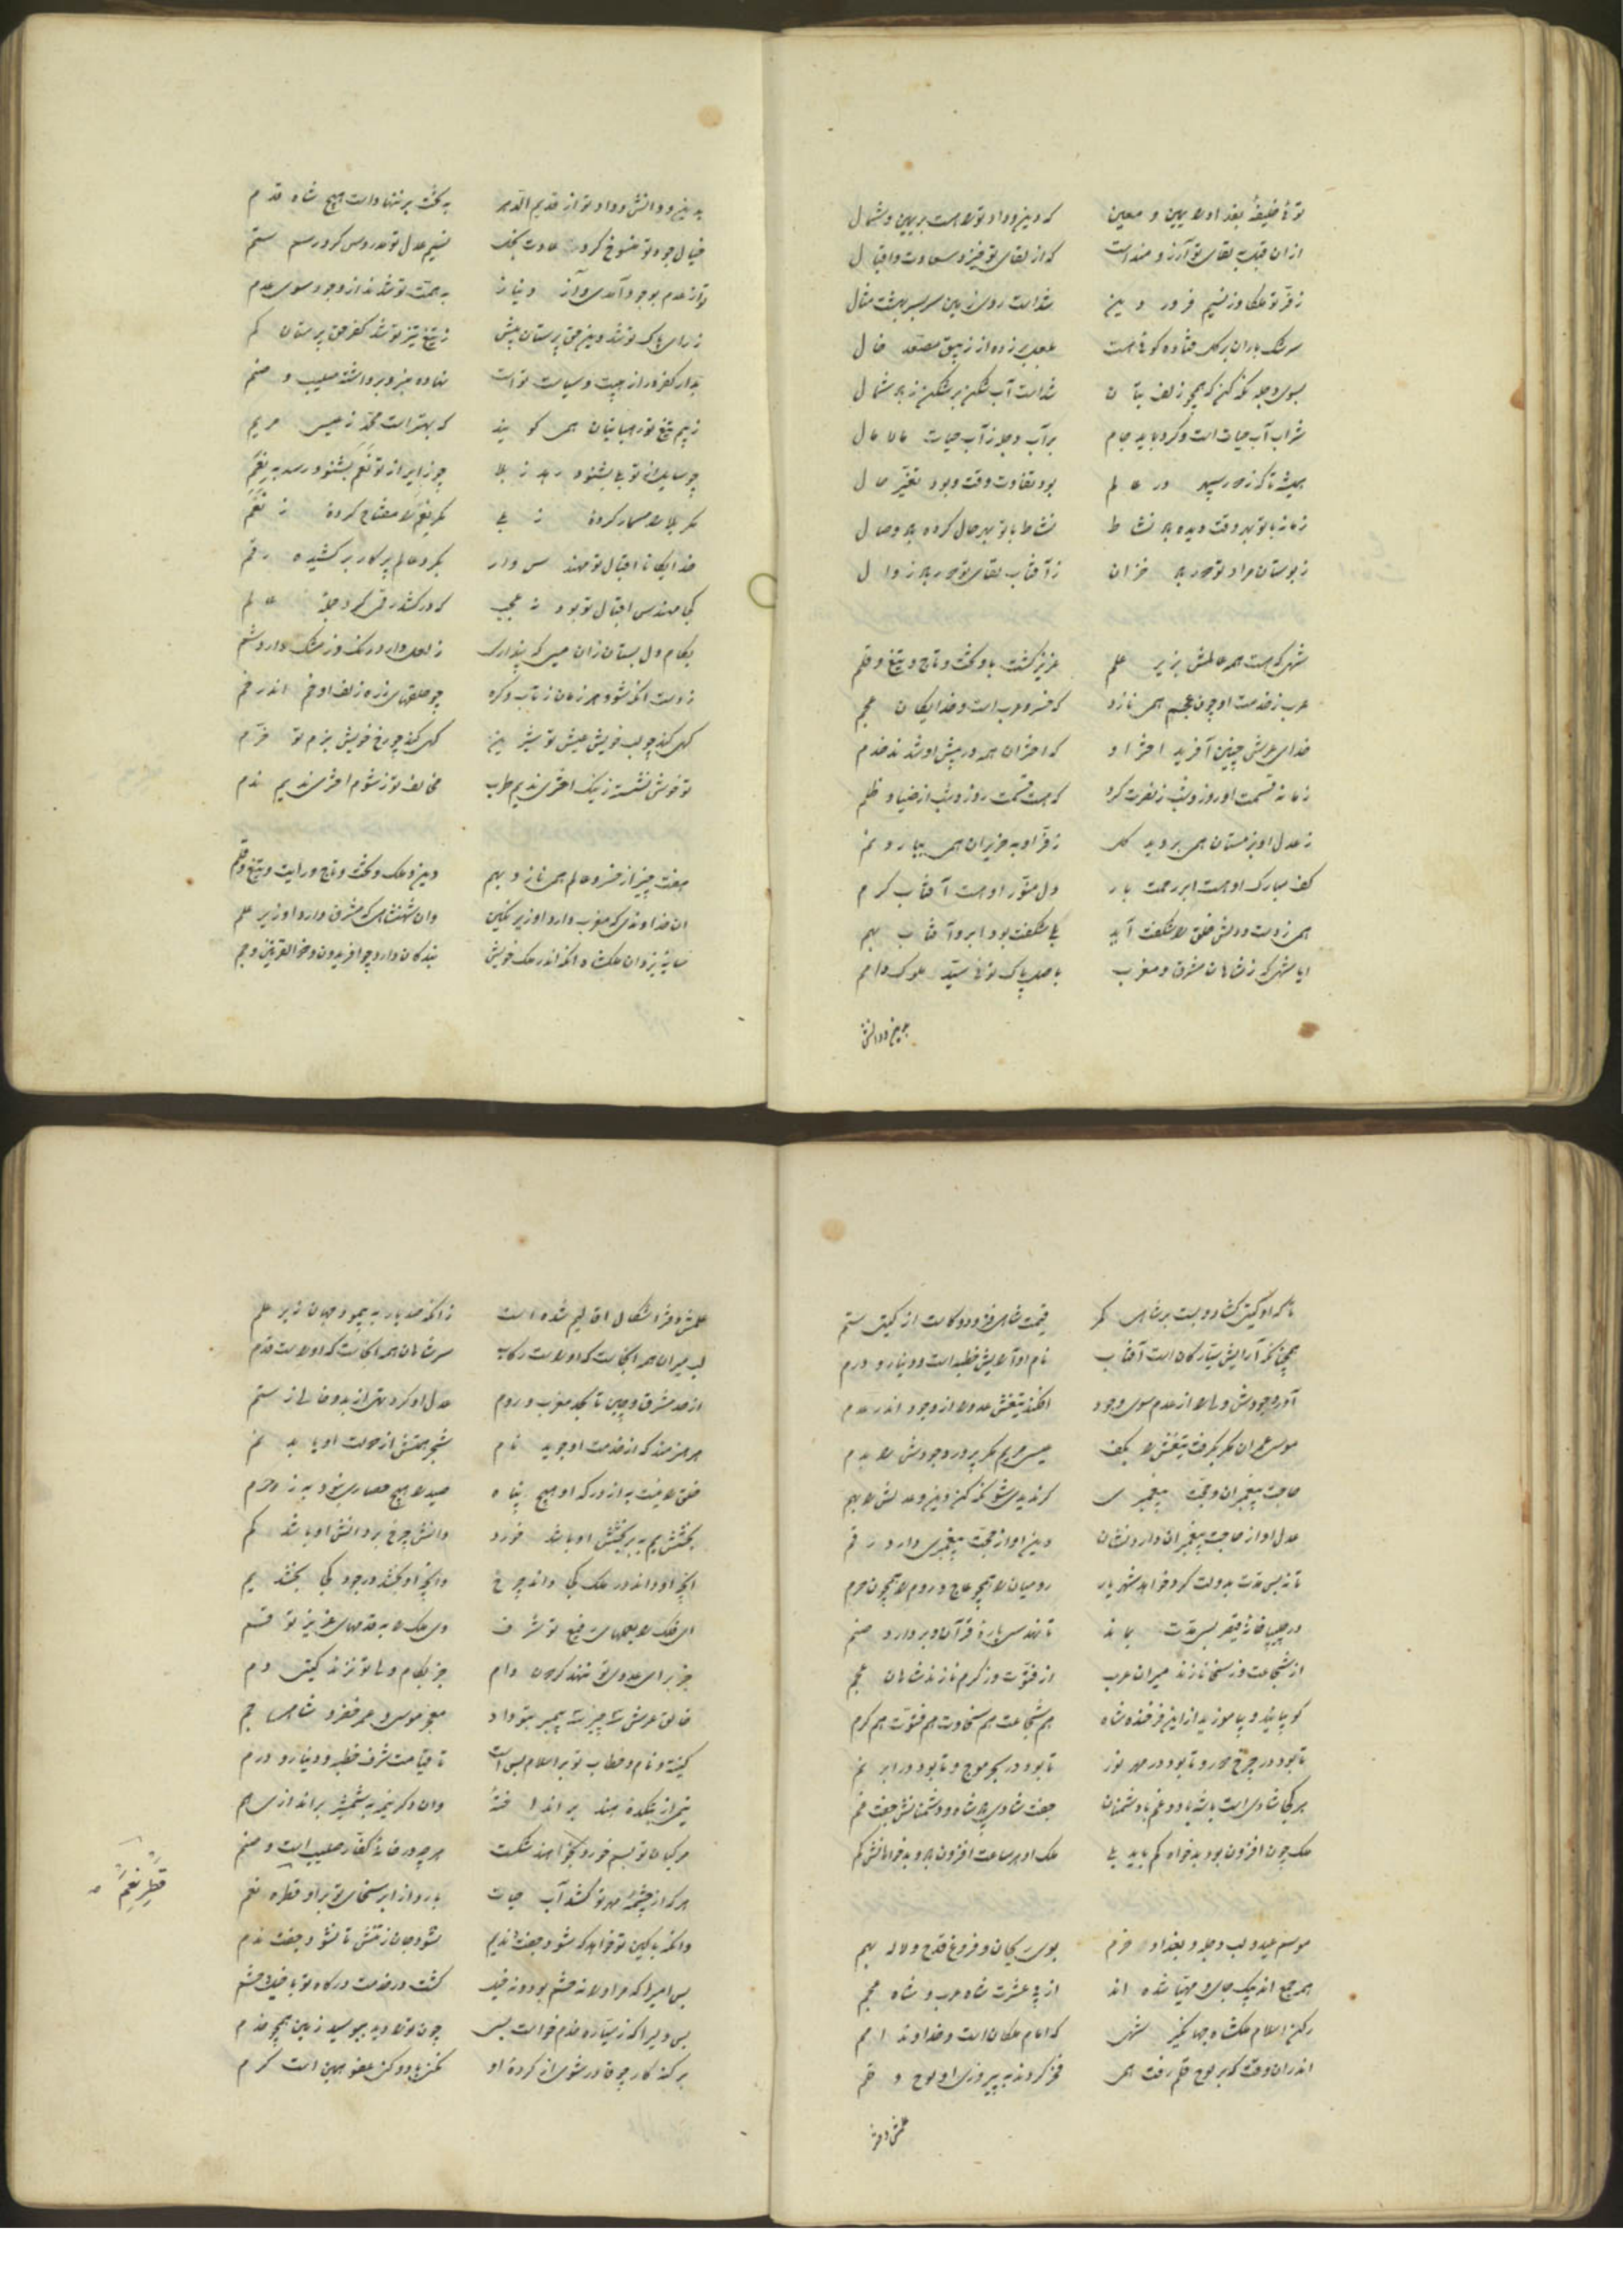 توئی خلیفهٔ بغداد را یمین و معین که دین و داد تو را هست بر یمین و شمال
ازان قبل به بقای تو آرزومند است که از بقای تو خیزد سعادت و اقبال
ز فرّ تو ملکا وز نسیم فروردین شدست روی زمین سر بسر بهشت مثال
سرشک باران بر گل فتاده گوئی هست بلعل بر زده از زیبق مصعّد خال
بسوی دجله نگه کن که همچو زلف بتان شدست آب شکن بر شکن ز باد شمال
شراب آب حیات است و گرد باید جام بر آب دجله ز آب حیات مالامال
همیشه تا که ز دور سپهر در عالم بود تفاوت وقت و بود تغیّر حال
زمانه با تو بهر وقت دیده باد نشاط نشاط با تو بهر حال کرده باد وصال
ز بوستان مراد تو دور باد خزان ز آفتاب بقای تو دور باد زوال
شهی که هست همه عالمش بزیر علم عزیز گشت بدو تخت و تاج و تیغ و قلم
عرب ز خدمت او چون عجم همی نازد که خسرو عرب است و خدایگان عجم
خدای عرش چنین آفرید اختر او که اختران همه در پیش او شدند خدم
زمانه قسمت او روز و شب ز نصرت کرد که هست قسمت روز و شب از ضیا و ظلم
ز عدل او بزمستان همی بروید گل ز فرّ او به حزیران همی ببارد نم
کف مبارک او هست ابر رحمت بار دل منوّر او هست آفتاب کرم
همی ز دست و دلش خلق را شگفت آید بلی شگفت بود ابر و آفتاب بهم
ایا شهی که ز شاهان مشرق و مغرب باصل پاک توئی سیّد ملوک امم
بدین و دانش
بدین و دانش و داد تو از قدیم الدهر به تخت بر ننهادست هیچ شاه قدم
خیال جود تو منسوخ کرد عادت بخل نسیم عدل تو مدروس کرد رسم ستم
تو از عدم بوجود آمدی و آز و نیاز به همّت تو شدند از وجود سوی عدم
ز رای پاک تو شد دین حق پرستان بیش ز تیغ تیز تو شد کفر حق پرستان کم
بدار کفر در از هیبت و سیاست توست نهاده منبر و برداشته صلیب و صنم
ز بیم تیغ تو رهبانیان همی گویند که بهترست محمّد ز عیسی مریم
چو سایل از تو بلی بشنود رهد ز بلا چو زایر از تو نعم بشنود رسد به نعم
مگر بلا را مسمار کرده ز بلی مگر نعم را مفتاح کرده ز نعم
خدایگانا اقبال تو مهندس وار بگرد عالم پرگار برکشیده رقم
بکام دل بستان زان می که پنداری ز لعل دارد رنگ و ز مشک دارد شم
ز دست آنکه شود هر زمان ز تاب و گره چو حلقهای زره زلف او خم اندر خم
گهی کند چو لب خویش عیش تو شیرین گهی کند چو رخ خویش بزم تو خرّم
تو خوش نشسته ز نیک اختری ندیم طرب مخالف تو ز شوم اختری ندیم ندم
هفت چیز از خسرو عالم همی نازد بهم دین و ملک و تخت و تاج و رایت و تیغ و قلم
آن خداوندی که مغرب دارد او زیر نگین وان شهنشاهی که مشرق دارد او زیر علم
سایهٔ یزدان ملکشاه آنکه اندر ملک خویش بندگان دارد چو افریدون و ذوالقرنین و جم
تا که او گیتی گشاد و بست بر شاهی کمر قیمت شاهی فزود و کاست از گیتی ستم
همچنان کآرایش سیّارگان است آفتاب نام او آرایش خطبه است و دینار و درم
آورد جودش ولی را از عدم سوی وجود افکند تیغش عدو را از وجود اندر عدم
موسی عمران مگر بگرفت تیغش را بکف عیسی مریم مگر پرورد جودش را بدم
حاجت پیغمبران و حجّت پیغمبری گر ندیدی شو نگه کن دین و عدلش را بهم
عدل او از حاجت پیغمبران دارد نشان دین او از حجّت پیغمبری دارد رقم
تا نه بس مدّت بدولت کرد خواهد شهریار رومیان را همچو حاج و روم را همچون حرم
در چلیپا خانهٔ قیصر بسی مدّت نماند تا نهد سی پارهٔ قرآن و بردارد صنم
از شجاعت وز سخا نازند میران عرب از فتوّت وز کرم نازند شاهان عجم
گو بیائید و بیاموزید ازین فرخنده شاه هم شجاعت هم سخاوت هم فتوّت هم کرم
تا بود در چرخ دور و تا بود در مهر نور تا بود در بحر موج و تا بود در ابر نم
هر کجا شادی است با شه باد و غم با دشمنان جفت شادی باد شاه و دشمنانش جفت غم
ملک چون افزون بود بدخواه کم باید بلی ملک او هر ساعت افزون باد و بدخواهانش کم
موسم عید و لب دجله و بغداد خرّم بوی ریحان و فروغ قدح و لاله بهم
همه جمع‌اند بیک جای و مهیّا شده‌اند از پی عشرت شاه عرب و شاه عجم
رکن اسلام ملکشاه جهانگیر شهی که امام ملکان است و خداوند امم
اندر آن وقت که بر لوح قلم رفت همی فخر کردند به پیروزی او لوح و قلم
علمش دفتر
علمش دفتر اشکال اقالیم شده است زانکه صد بار به پیمود جهان زیر علم
لب میران همه آنجاست که او راست رکاب سر شاهان همه آنجاست که او راست قدم
از حد مشرق و چین تا بحد مغرب و روم عدل او کرد تهی از بد و خالی ز ستم
هر هنرمند که از خدمت او جوید نام شجر همتش از دولت او یابد نم
خلق را نیست به از درگه او هیچ پناه صید را هیچ حصاری نبود به ز حرم
بخشش یم به بر بخشش او باشد خرد دانش چرخ بر دانش او باشد کم
آنچه او داند در ملک کجا داند چرخ وانچه او بخشد در جود کجا بخشد یم
ای فلک را به علمهای رفیع تو شرف وی ملک را به قدمهای عزیز تو قسم
جز برای عدوی تو ننهد گردون دام جز بکام ولی تو نزند گیتی دم
خالق عرش سه چیز سه پیمبر بتو داد معجز موسی و عمر خضر و شاهی جم
کنیه و نام و خطاب تو بر اسلام بس است تا قیامت شرف خطبه و دینار و درم
نیمی از بتکدهٔ هند برانداختهٔ وان دگر نیمه به شمشیر براندازی هم
هر کجا تو بسفر در بکفر خواهند شکست هر چه در خانهٔ کفّار صلیب است و صنم
هر که از چشمهٔ مهر تو کشد آب حیات بارد از ابر سخای تو بر او قطره نعم
قطر نعم
وانکه با کین تو خواهد که شود جفت ندیم نشود جان ز تنش تا نشود جفت ندم
بس امیرا که مر او را نه حشم بود و نه خیل گشت در خدمت درگاه تو با خیل و حشم
بس دلیرا که ز سیّاره خدم خواست بسی چون ترا دید ببوسید زمین همچو خدم
بر گنه کار چو قادر شوی از کردهٔ او مکن یاد و مکن عفو همین است کرم